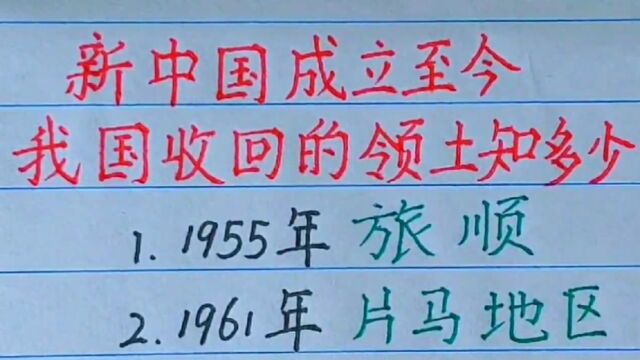 新中国成立至今
我国收回的领土知多少
1.1955年 旅顺
2.1961年 片马地区